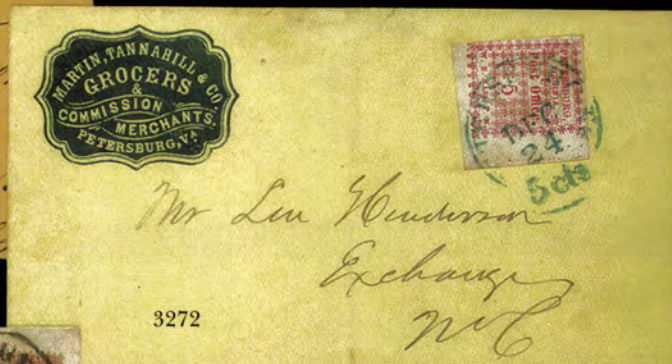 MARTIN, TANNAHILL & CO.
GROCERS
&
COMMISSION
MERCHANTS.
PETERSBURG, VA
Post Office
5
DEC
24
5 cts
Mr Len Henderson
Exchange
N C
3272